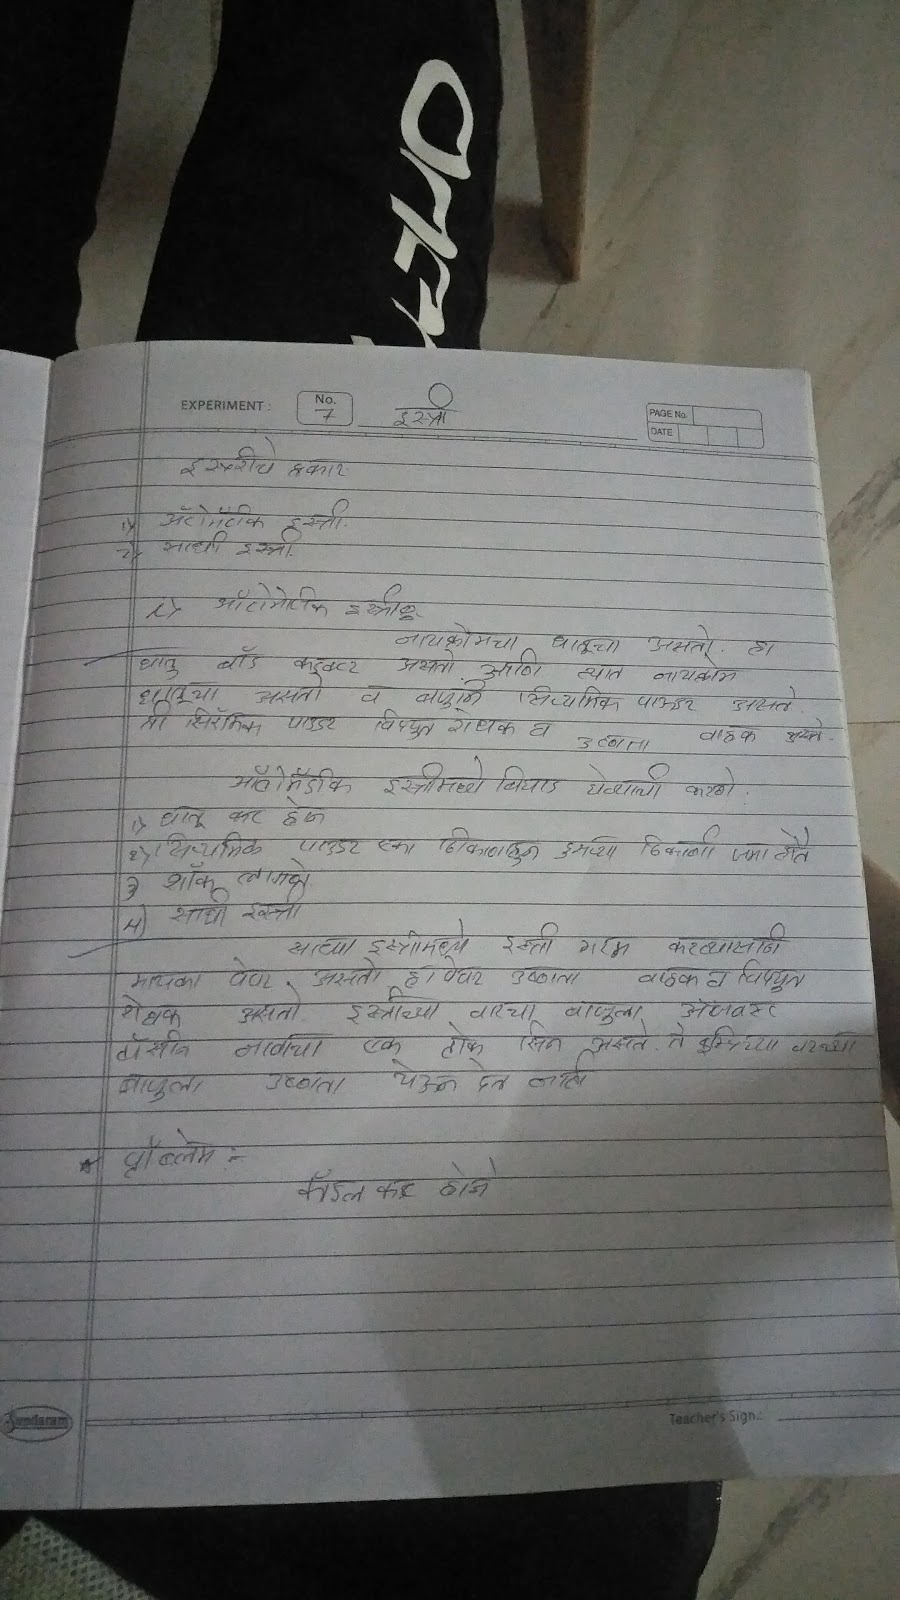 EXPERIMENT : No. 7 इस्त्री
PAGE No.
DATE
इस्त्रीचे प्रकार
१) ऑटोमॅटीक इस्त्री.
२) साधी इस्त्री.
i) ऑटोमॅटीक इस्त्री
नायक्रोमचा धातूचा असतो. हा
धातु बॅड कंडक्टर असतो. आणि त्यात नायक्रोम
धातूचा असतो व बाजूने पाऊडर असते.
ती सिरॅमिक पाउडर विद्युत रोधक व उष्णता वाहक असते.
ऑटोमॅटीक इस्त्रीमध्ये बिघाड येण्याची कारणे.
१) धातू कट होणे
२) पाउडर एका ठिकाणाहून दुसऱ्या ठिकाणी जमा होते
3) शॉक लागणे.
4) साधी इस्त्री
साध्या इस्त्रीमध्ये इस्त्री गरम करण्यासाठी
मायका पेपर असतो हा पेपर उष्णता वाहक व विद्युत
रोधक असतो. इस्त्रीच्या वरच्या बाजुला
नावाचा एक असते. ते इस्त्रिच्या वरच्या
बाजुला उष्णता येऊन देत नाही
* प्रॉब्लेम :-
कॉइल कट होणे
Sundaram
Teacher's Sign.: